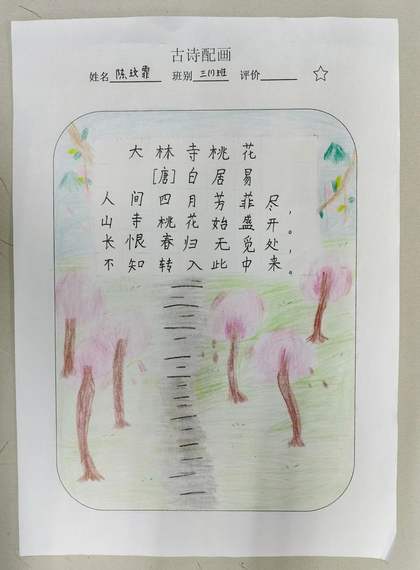 古诗配画
姓名 陈玟霏 班别 三(1)班 评价
大林寺桃花
[唐]白居易
人间四月芳菲尽，
山寺桃花始盛开。
长恨春归无觅处，
不知转入此中来。